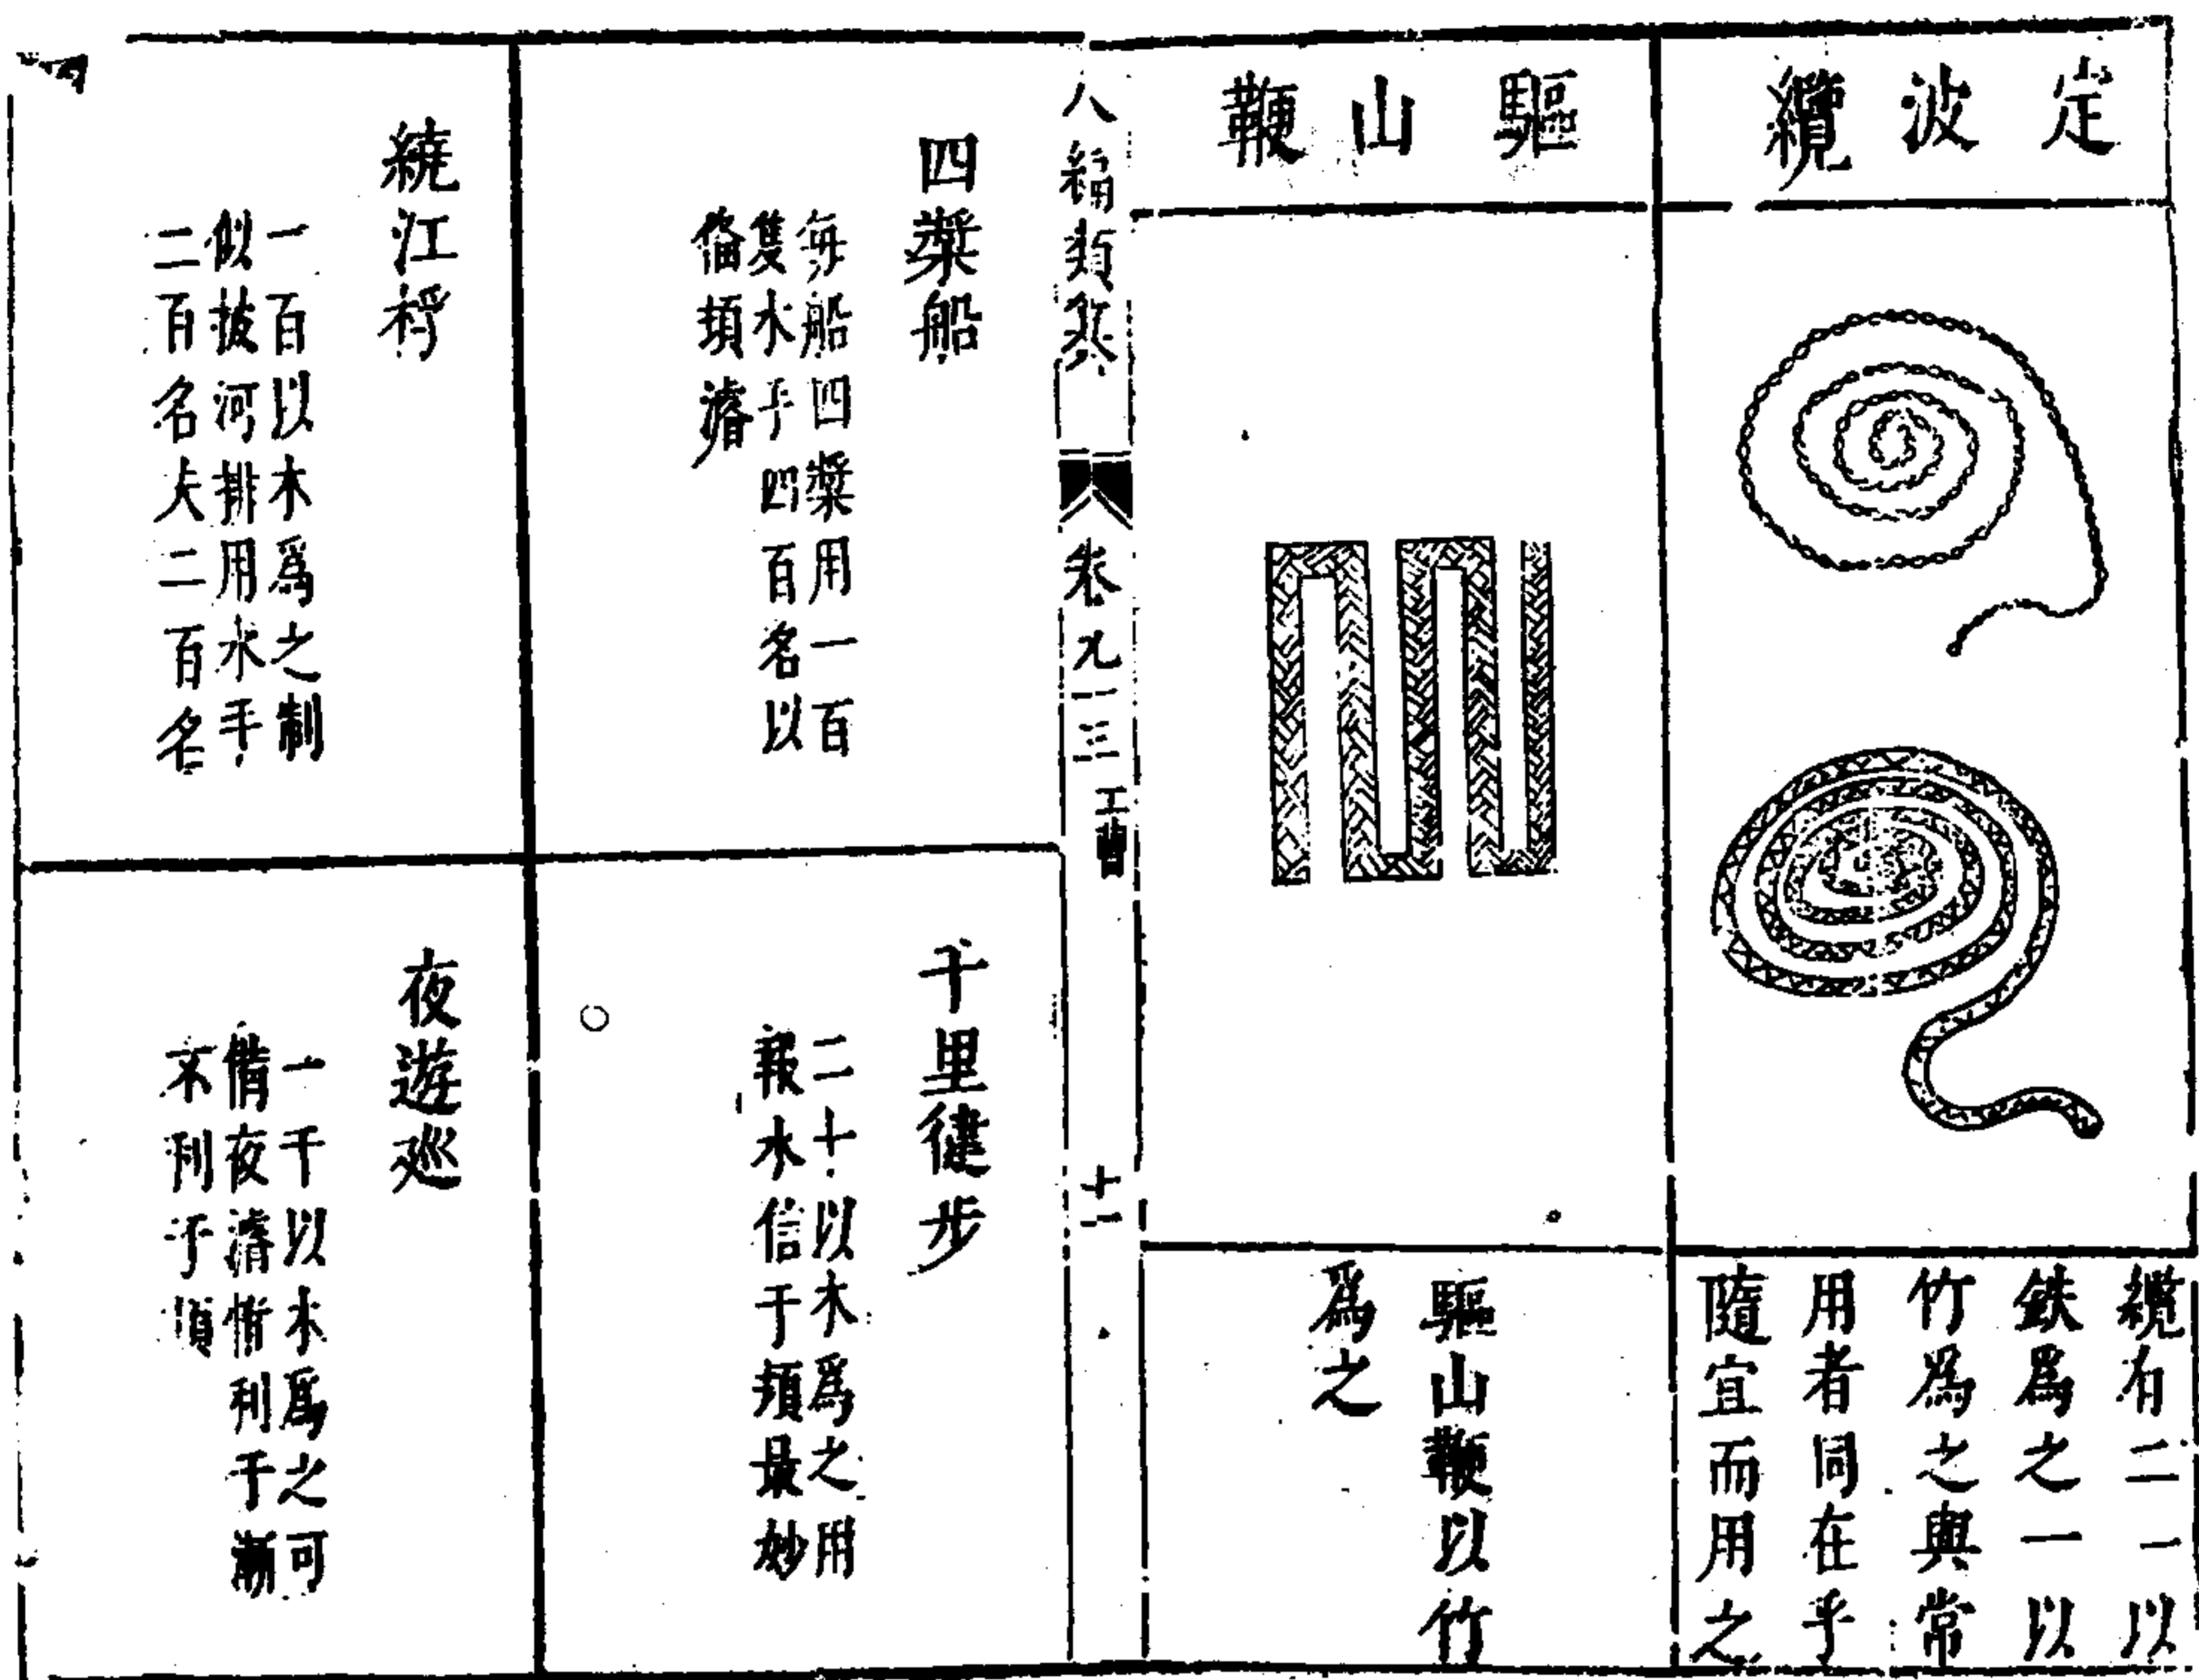 定波纜
纜有二一以
鉄爲之一以
竹爲之與常
用者同在乎
隨宜而用之
驅山鞭
驅山鞭以竹
爲之
八編類纂
工曹
十一
四槳船
每船四槳用一百
隻水手四百名以
俻頃濬
千里健步
二十以木爲之用
報水信于頃最妙
繞江桴
一百以木爲之制
似披河排用水手
二百名夫二百名
夜遊巡
一千以木爲之可
備夜濬惟利于漸
不利于頃